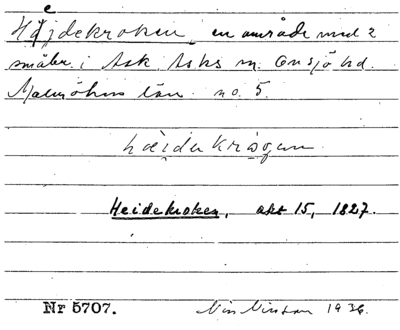 Heidekroken, en område med 2
småbr. i Ask Asks sn. Onsjö hd.
Malmöhus län no. 5.
hæidekrågen
Heidekroken, akt 15, 1827.
Nr 5707. 1936.